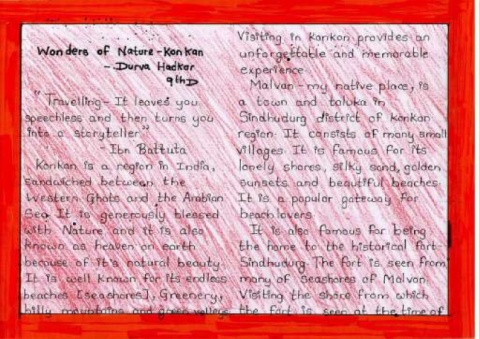 Wonders of Nature-Konkan
- Durva Hadkar
9th D
"Travelling- It leaves you
speechless and then turns you
into a storyteller."
- Ibn Battuta
Konkan is a region in India,
sandwiched between the
Western Ghats and the Arabian
Sea. It is generously blessed
with Nature and it is also
known as heaven on earth
because of it's natural beauty.
It is well known for its endless
beaches [seashores], Greenery,
hilly mountains and green valleys
Visiting in Konkon provides an
unforgettable and memorable
experience.
Malvan - my native place, is
a town and taluka in
Sindhudurg district of Konkan
region. It consists of many small
villages. It is famous for its
lonely shores, silky sand, golden
sunsets and beautiful beaches.
It is a popular gateway for
beach lovers.
It is also famous for being
the home to the historical fort-
Sindhudurg. The fort is seen from
many of seashores of Malvan.
Visiting the shore from which
the fort is seen at the time of